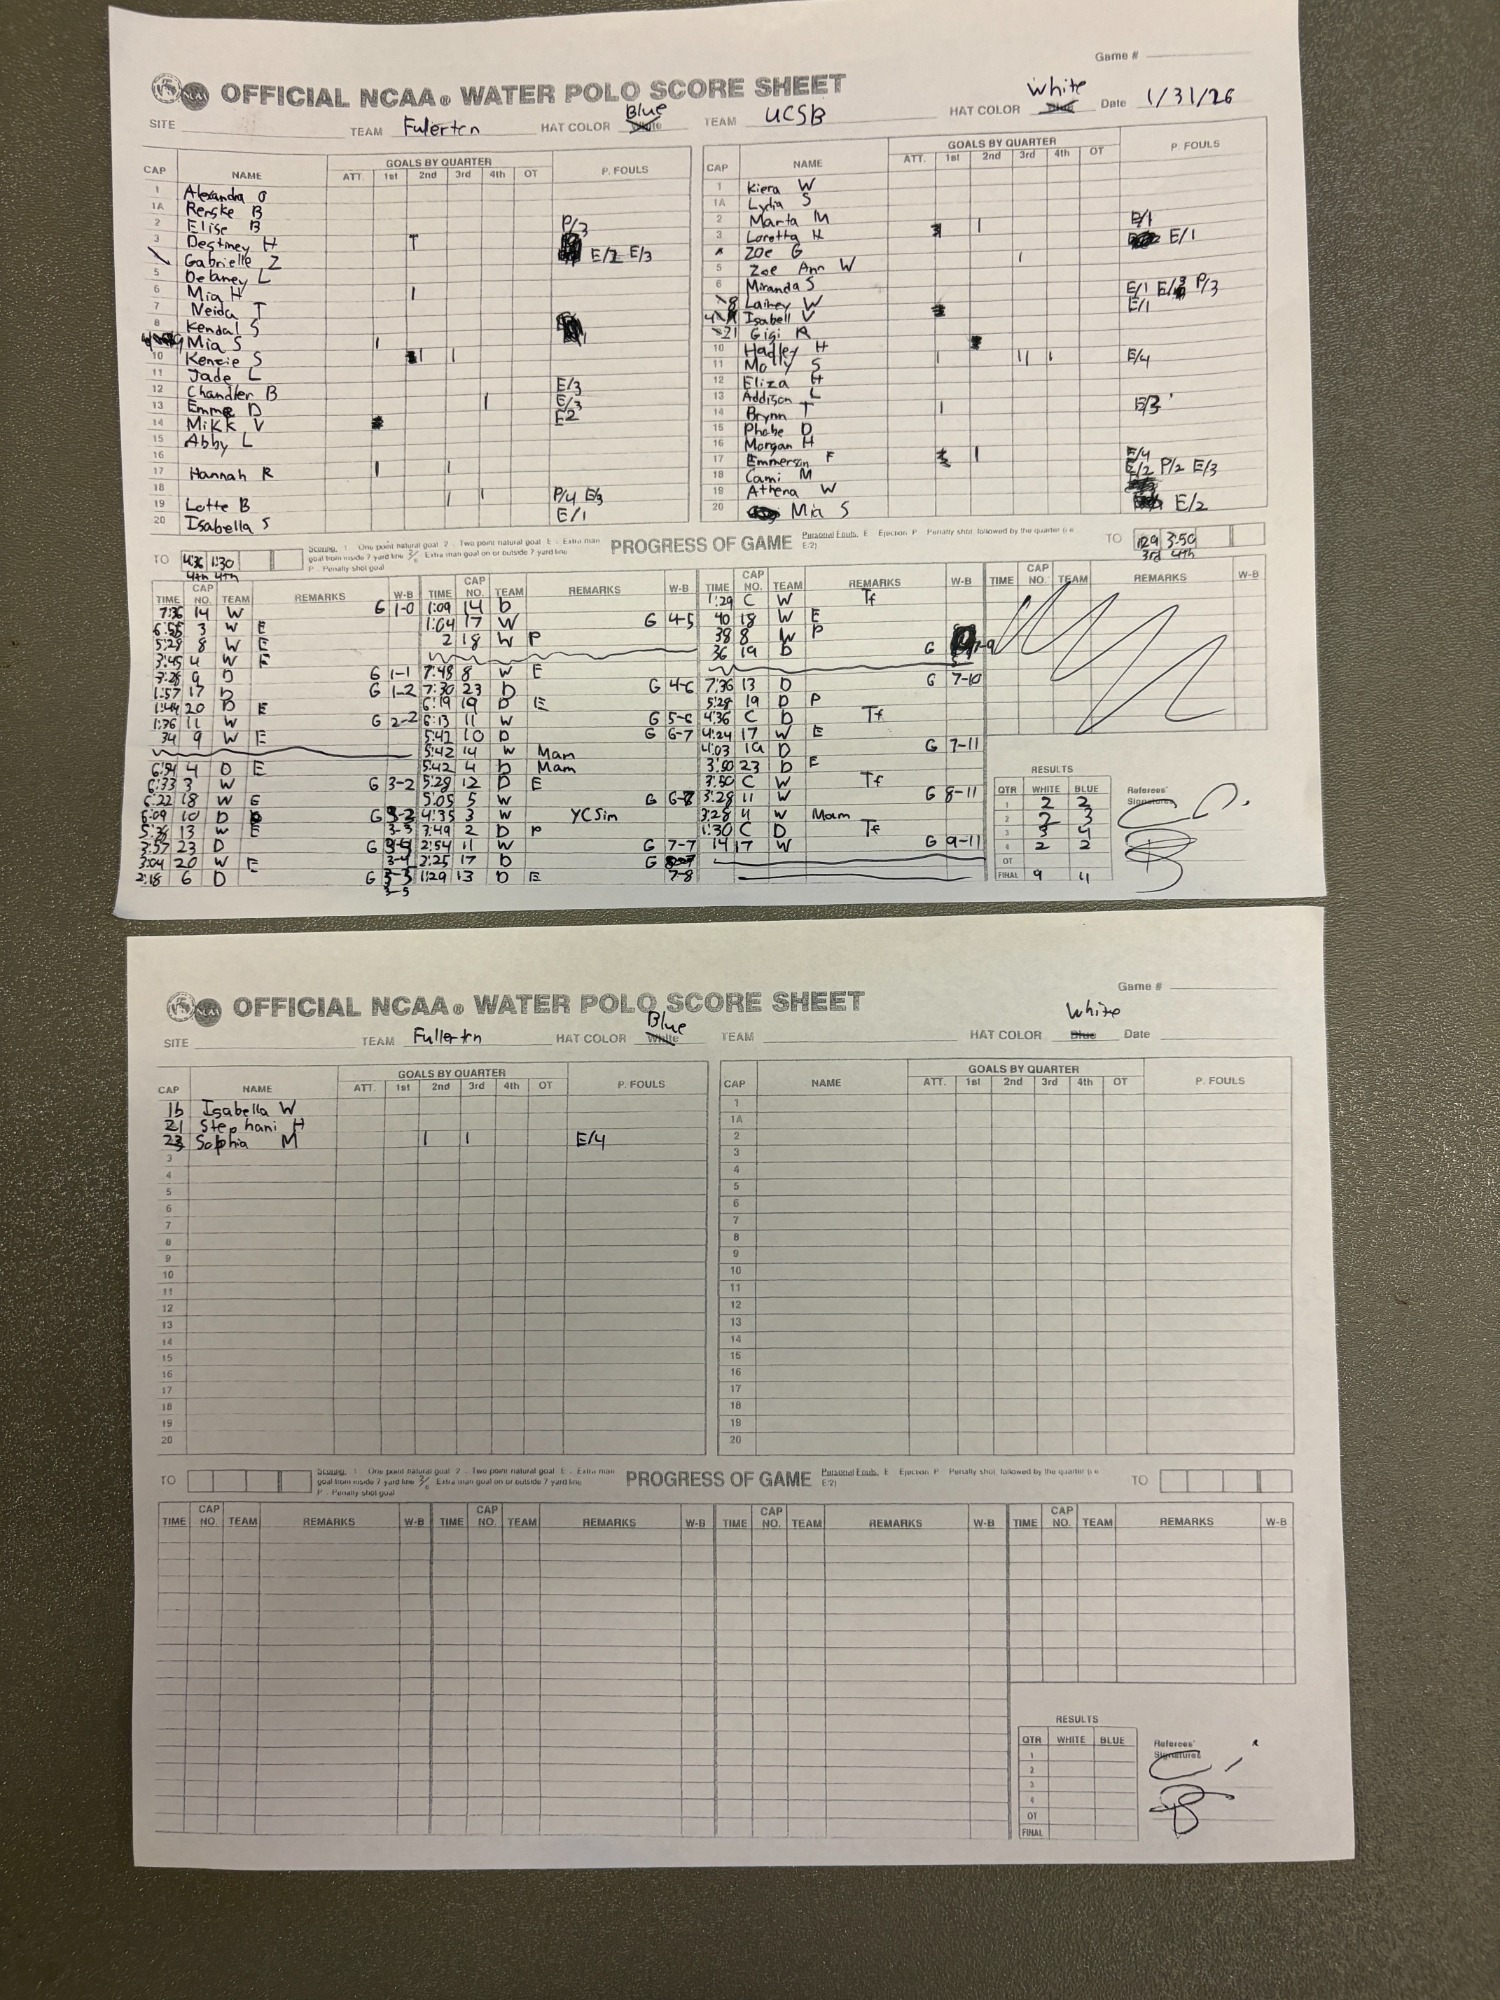 Game #
OFFICIAL NCAA® WATER POLO SCORE SHEET
SITE TEAM Fulerton HAT COLOR Blue White TEAM UCSB HAT COLOR White Blue Date 1/31/26
CAP NAME GOALS BY QUARTER P. FOULS
ATT. 1st 2nd 3rd 4th OT
1 Alexandra O
1A Renske B
2 Elise B P/3
3 Destiney H
Gabrielle Z E/2 E/3
5 Delaney L
6 Mia H 1
7 Neida T
8 Kendal S
9 Mia S 1
10 Kenzie S 1 1
11 Jade L
12 Chandler B E/3
13 Emma D 1 E/3
14 Mikk V E2
15 Abby L
16
17 Hannah R 1 1
18
19 Lotte B 1 1 P/4 E/3
20 Isabella S E/1
CAP NAME GOALS BY QUARTER P. FOULS
ATT. 1st 2nd 3rd 4th OT
1 Kiera W
1A Lydia S
2 Marta M E/1
3 Loretta H 1 E/1
Zoe G
5 Zoe Ann W 1
6 Miranda S E/1 P/3
8 Lainey W E/1
Isabell V
21 Gigi R
10 Hadley H
11 Molly S 1 11 1 E/4
12 Eliza H
13 Addison L
14 Brynn T 1 E/3
15 Phobe D
16 Morgan H
17 Emmerson F 1 E/4
18 Cami M E/2 P/2 E/3
19 Athena W
20 Mia S E/2
TO 4:36 1:30
4th 4th
Scoring. 1 - One point natural goal 2 - Two point natural goal E - Extra man
goal from inside 7 yard line 2/E Extra man goal on or outside 7 yard line
P - Penalty shot goal
PROGRESS OF GAME
Personal Fouls. E Ejection P Penalty shot followed by the quarter (i.e.
E-2)
TO 1:29 3:50
3rd 4th
TIME CAP NO. TEAM REMARKS W-B
7:36 14 W G 1-0
6:55 3 W E
5:29 8 W E
3:45 4 W E
3:28 9 D G 1-1
1:57 17 D G 1-2
1:44 20 D E
1:36 11 W G 2-2
34 9 W E
6:54 4 D E
6:33 3 W G 3-2
6:22 18 W E
6:09 10 D G 3-3
5:36 13 W E
3:57 23 D G 3-4
3:04 20 W E
2:18 6 D G 3-5
TIME CAP NO. TEAM REMARKS W-B
1:09 14 D
1:04 17 W G 4-5
2 18 W P
7:48 8 W E
7:30 23 D G 4-6
6:19 19 D E
6:13 11 W G 5-6
5:42 10 D G 6-7
5:42 14 W Mam
5:42 4 D Mam
5:29 12 D E
5:05 5 W G 6-8
4:35 3 W YC Sim
3:49 2 D P
2:54 11 W G 7-7
2:25 17 D G 7-8
1:29 13 D E
TIME CAP NO. TEAM REMARKS W-B
1:29 C W Tf
40 18 W E
38 8 W P
36 19 D G 7-9
7:36 13 D G 7-10
5:28 19 D P
4:36 C D Tf
4:24 17 W E
4:03 19 D G 7-11
3:50 23 D E
3:50 C W Tf
3:28 11 W G 8-11
3:28 4 W Mam
1:30 C D Tf
14 17 W G 9-11
TIME CAP NO. TEAM REMARKS W-B
RESULTS
QTR WHITE BLUE
1 2 2
2 2 3
3 3 4
4 2 2
OT
FINAL 9 11
Referees'
Signatures
Game #
OFFICIAL NCAA® WATER POLO SCORE SHEET
SITE TEAM Fullerton HAT COLOR Blue White TEAM HAT COLOR White Blue Date
CAP NAME GOALS BY QUARTER P. FOULS
ATT. 1st 2nd 3rd 4th OT
16 Isabella W
21 Stephani H
23 Sophia M 1 1 E/4
3
4
5
6
7
8
9
10
11
12
13
14
15
16
17
18
19
20
CAP NAME GOALS BY QUARTER P. FOULS
ATT. 1st 2nd 3rd 4th OT
1
1A
2
3
4
5
6
7
8
9
10
11
12
13
14
15
16
17
18
19
20
TO
Scoring. 1 - One point natural goal 2 - Two point natural goal E - Extra man
goal from inside 7 yard line 2/E Extra man goal on or outside 7 yard line
P - Penalty shot goal
PROGRESS OF GAME
Personal Fouls. E Ejection P Penalty shot, followed by the quarter (i.e.
E-2)
TO
TIME CAP NO. TEAM REMARKS W-B TIME CAP NO. TEAM REMARKS W-B TIME CAP NO. TEAM REMARKS W-B TIME CAP NO. TEAM REMARKS W-B
RESULTS
QTR WHITE BLUE
1
2
3
4
OT
FINAL
Referees'
Signatures